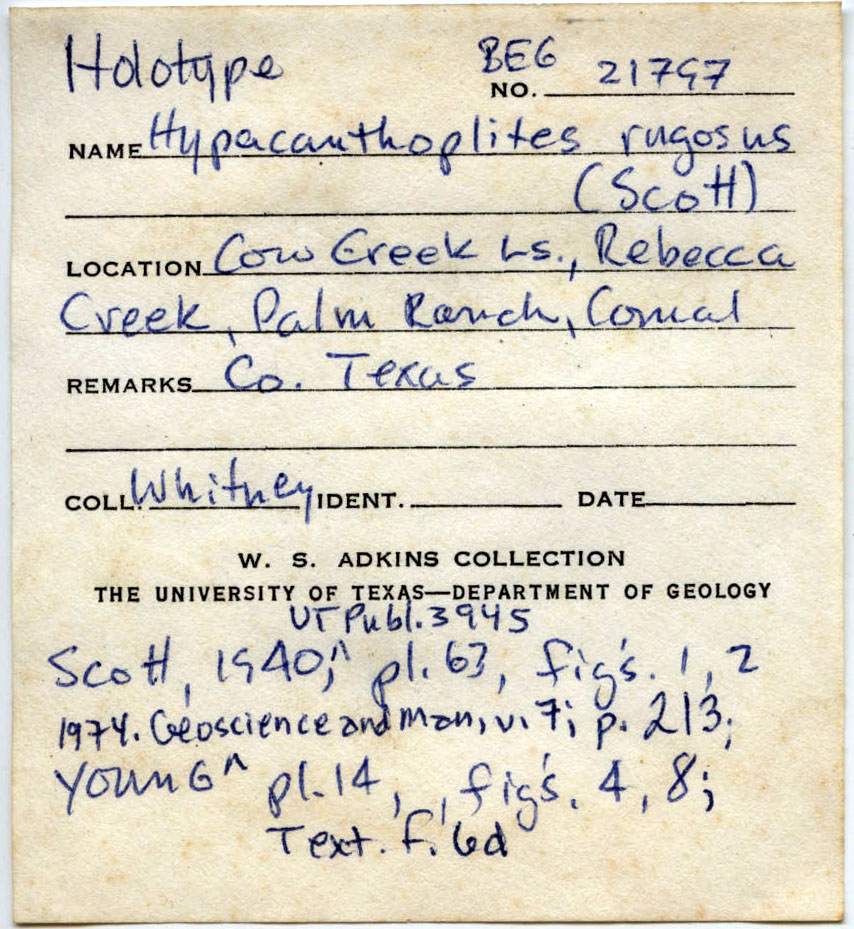 Holotype BEG
NO. 21797
NAME Hypacanthoplites rugosus
(Scott)
LOCATION Cow Creek Ls., Rebecca
Creek, Palm Ranch, Comal
REMARKS Co. Texas
COLL. Whitney IDENT. DATE
W. S. ADKINS COLLECTION
THE UNIVERSITY OF TEXAS—DEPARTMENT OF GEOLOGY
UT Publ. 3945
Scott, 1940;^ pl. 63, fig's. 1, 2
1974. Geoscience and Man, v. 7; p. 213;
YOUNG^ pl. 14, , fig's. 4, 8;
Text. f. 6d